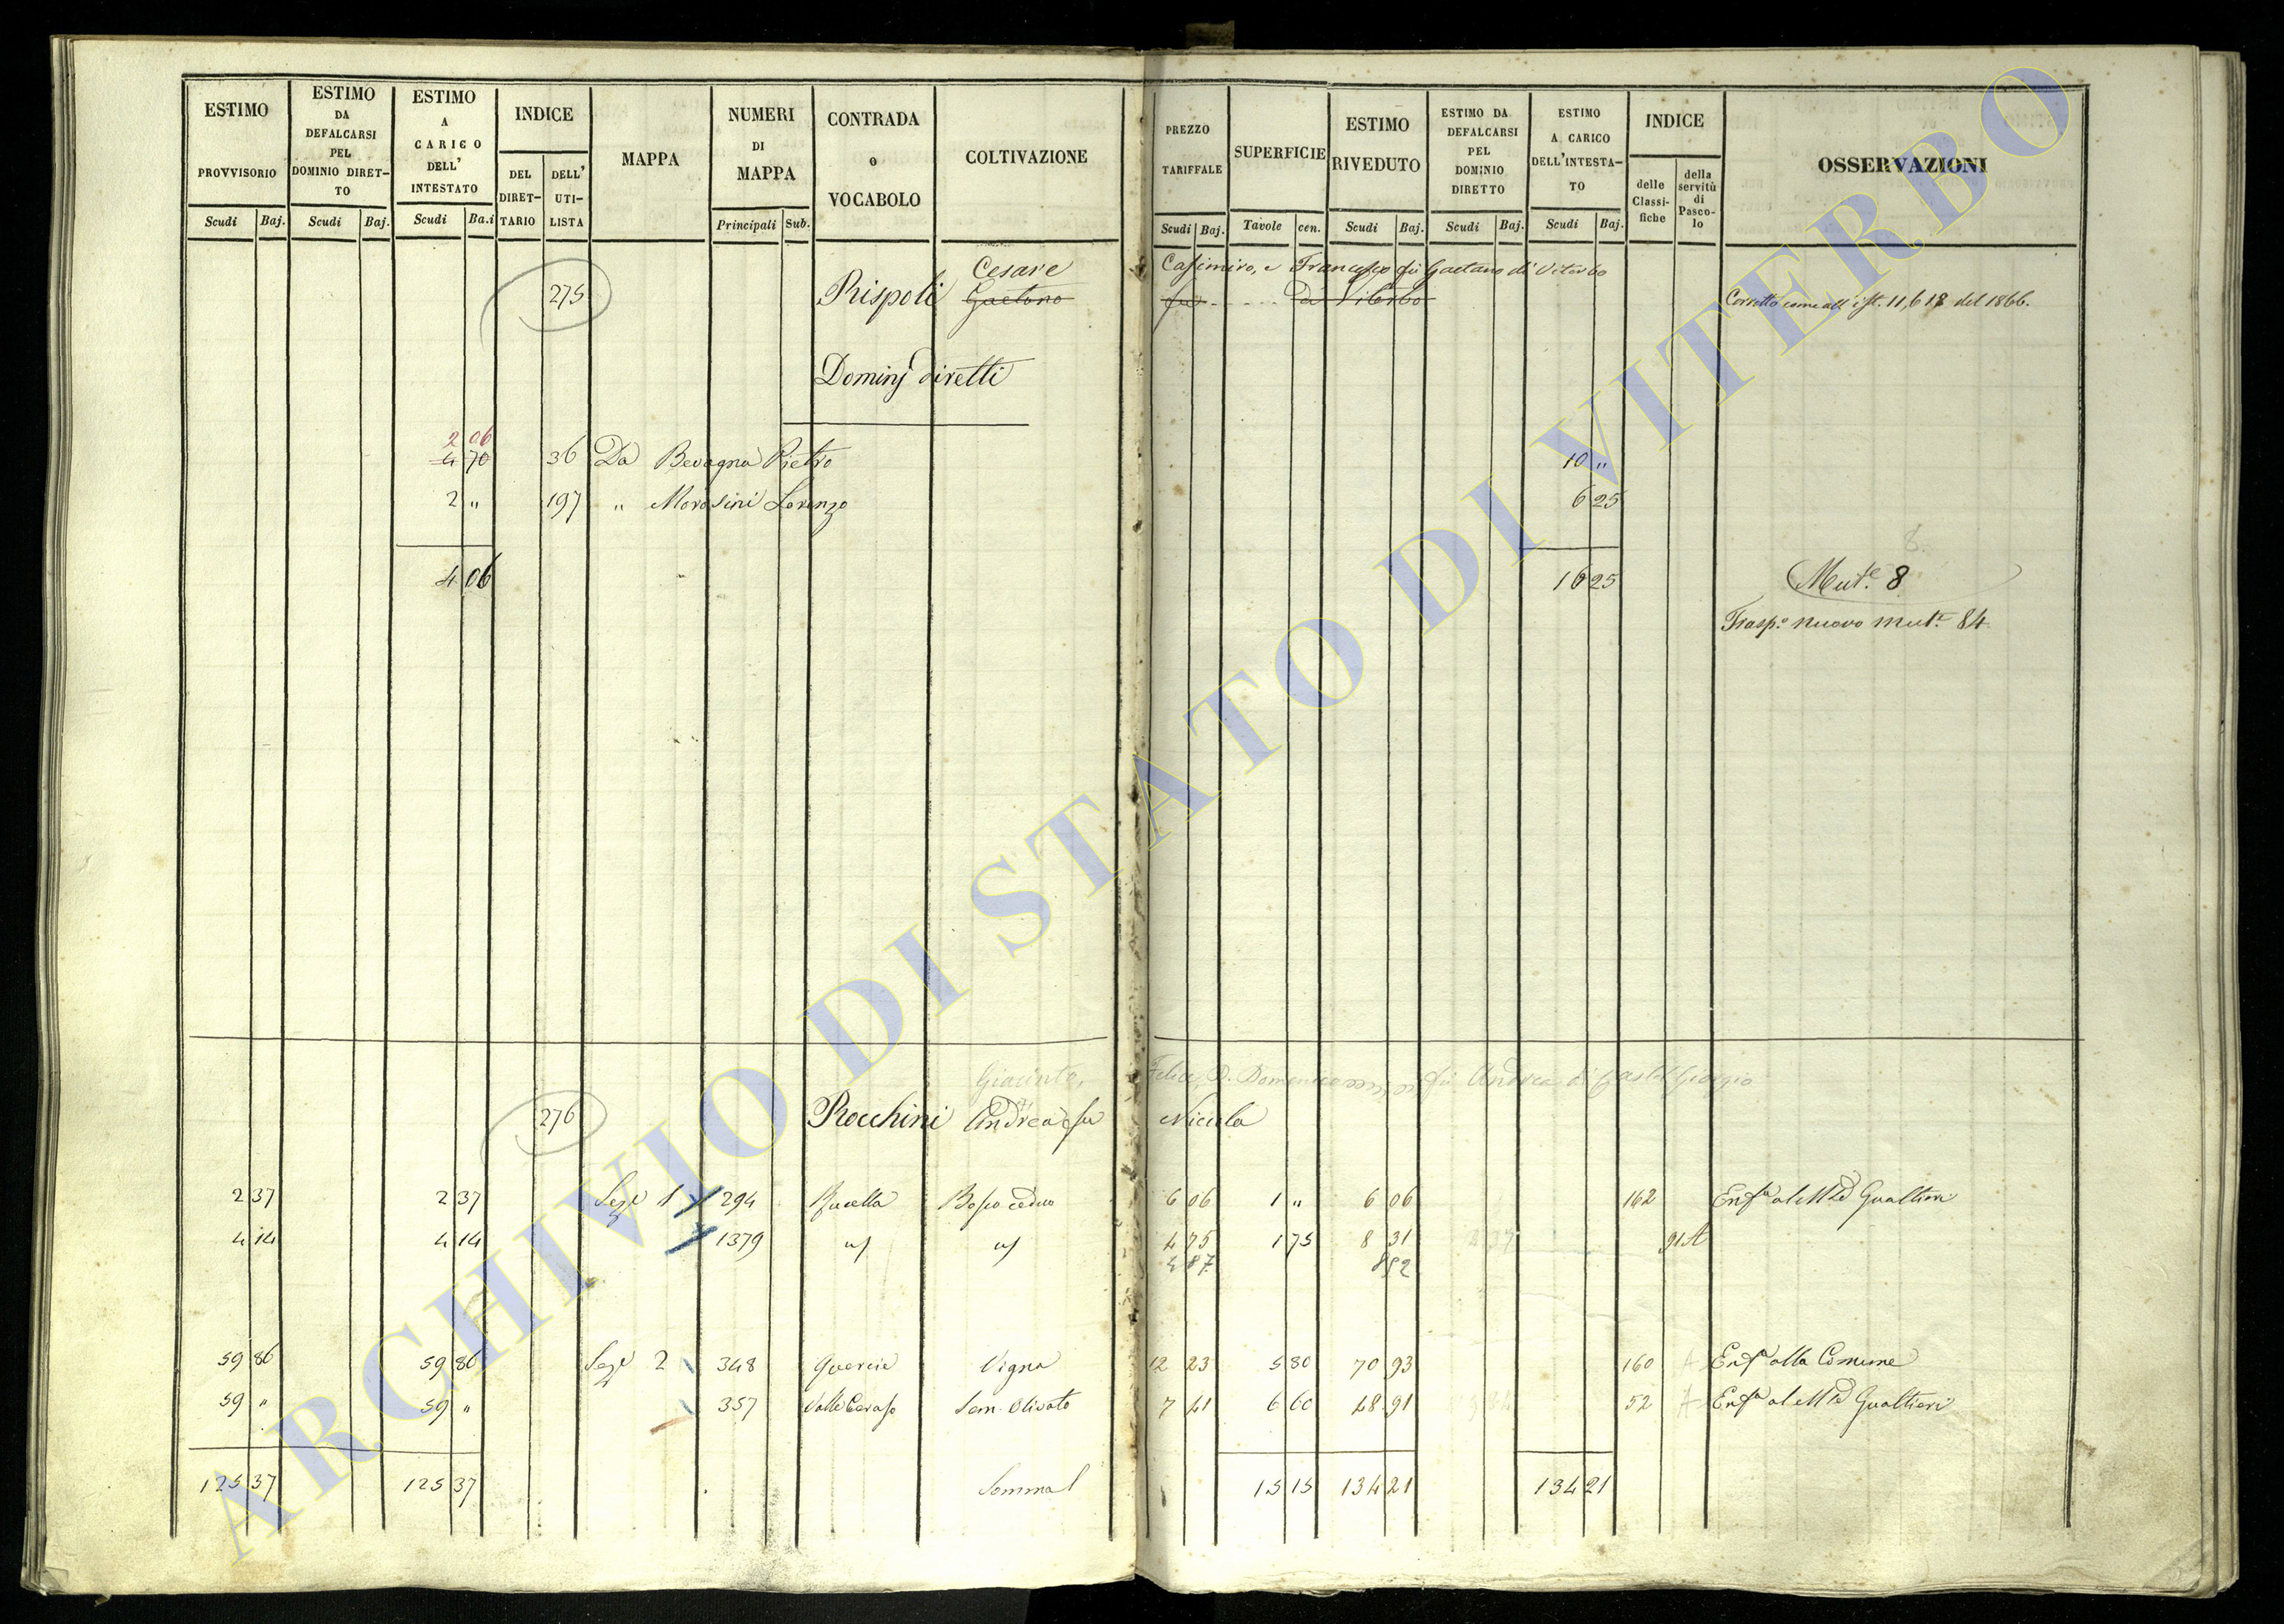 ESTIMO PROVVISORIO Scudi Baj.
ESTIMO DA DEFALCARSI PEL DOMINIO DIRET-TO Scudi Baj.
ESTIMO A CARICO DELL' INTESTATO Scudi Ba.i
INDICE DEL DIRET-TARIO DELL' UTI-LISTA
MAPPA
NUMERI DI MAPPA Principali Sub.
CONTRADA o VOCABOLO
COLTIVAZIONE
PREZZO TARIFFALE Scudi Baj.
SUPERFICIE Tavole cen.
ESTIMO RIVEDUTO Scudi Baj.
ESTIMO DA DEFALCARSI PEL DOMINIO DIRETTO Scudi Baj.
ESTIMO A CARICO DELL'INTESTA-TO Scudi Baj.
INDICE delle Classi-fiche della servitù di Pasco-lo
OSSERVAZIONI
Cesare Casimiro, e Francesco fù Gaetano di Viterbo
275 Rispoli Gaetano fu . . . . di Viterbo Corretto come all' ist. 11, 618 del 1866.
Dominj diretti
2 06
4 70 36 Da Bevagna Pietro 10 "
2 " 197 " Morosini Lorenzo 6 25
8
4 06 16 25 Mut.e 8
Trasp.o nuovo mut.e 84
Giacinto, Felice, D. Domenico fù Andrea di Castel Giorgio
276 Rocchini Andrea fu Nicola
2 37 2 37 Sez.e 1 294 Bosco ceduo 6 06 1 " 6 06 162 Enf.a al M.se Gualtieri
4 14 4 14 1379 4 75 1 75 8 31 91 A
4 87 8 52
59 86 59 86 Sez.e 2 348 Quercie Vigna 12 23 5 80 70 93 160 A Enf.a alla Comune
59 " 59 " 357 Valle Sem. Olivato 7 41 6 60 48 91 52 A Enf.a al M.se Gualtieri
125 37 125 37 Somma 15 15 134 21 134 21
ARCHIVIO DI STATO DI VITERBO